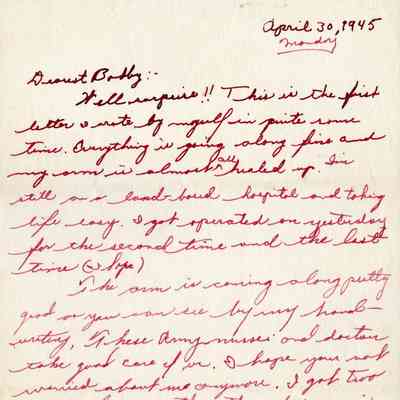 April 30, 1945
Monday
Dearest Bobby:-
Well surprise!! This is the first
letter I wrote by myself in quite some
time. Everything is going along fine and
my arm is almost all healed up. I'm
still on a land-based hospital and taking
life easy. I got operated on yesterday
for the second time and the last
time (I hope)
The arm is coming along pretty
good as you can see by my hand-
writing. These Army nurses and doctors
take good care of us. I hope your not
worried about me anymore. I got two